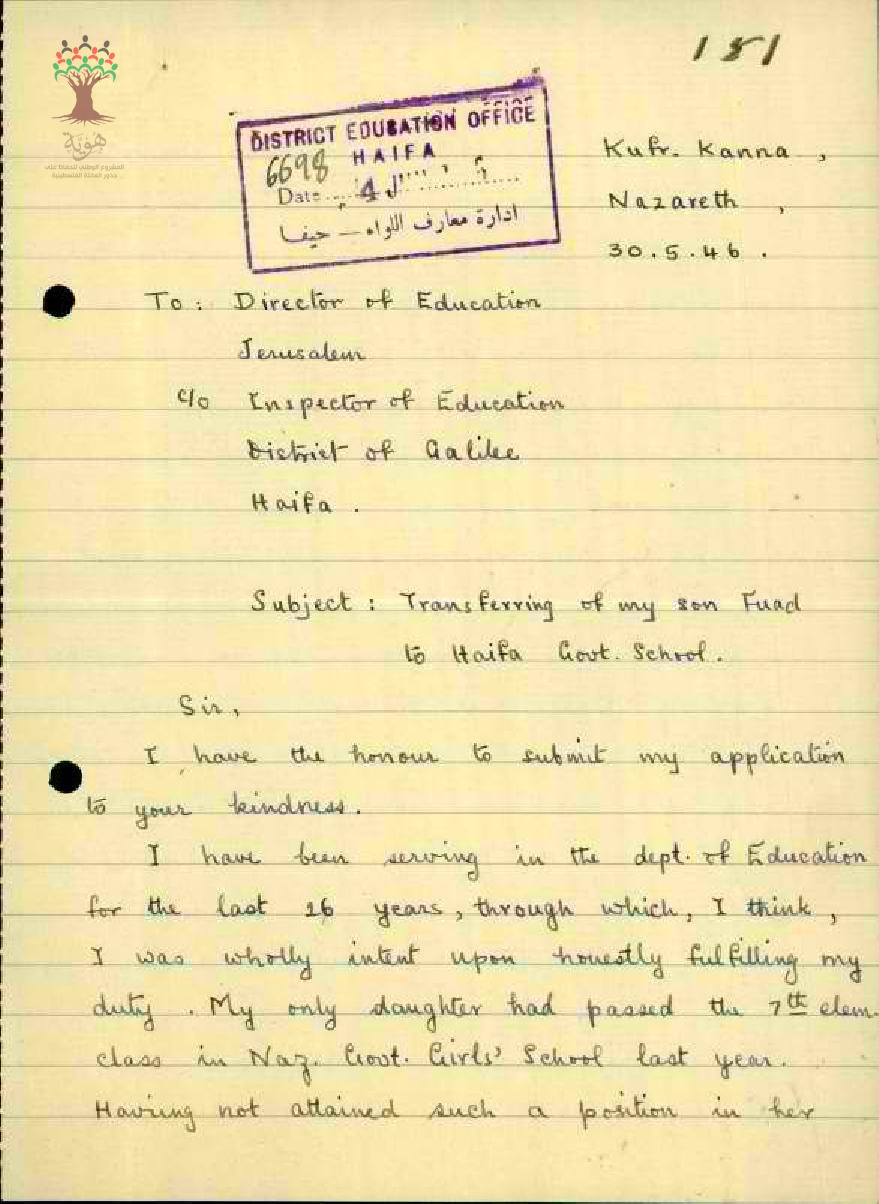 151
هوية
المشروع الوطني للحفاظ على
جذور العائلة الفلسطينية
DISTRICT EDUCATION OFFICE
HAIFA
6698
Date 4
ادارة معارف اللواء — حيفا
Kufr. Kanna,
Nazareth,
30.5.46.
To: Director of Education
Jerusalem
c/o Inspector of Education
District of Galilee
Haifa.
Subject: Transferring of my son Fuad
to Haifa Govt. School.
Sir,
I have the honour to submit my application
to your kindness.
I have been serving in the dept. of Education
for the last 26 years, through which, I think,
I was wholly intent upon honestly fulfilling my
duty. My only daughter had passed the 7th elem.
class in Naz. Govt. Girls' School last year.
Having not attained such a position in her